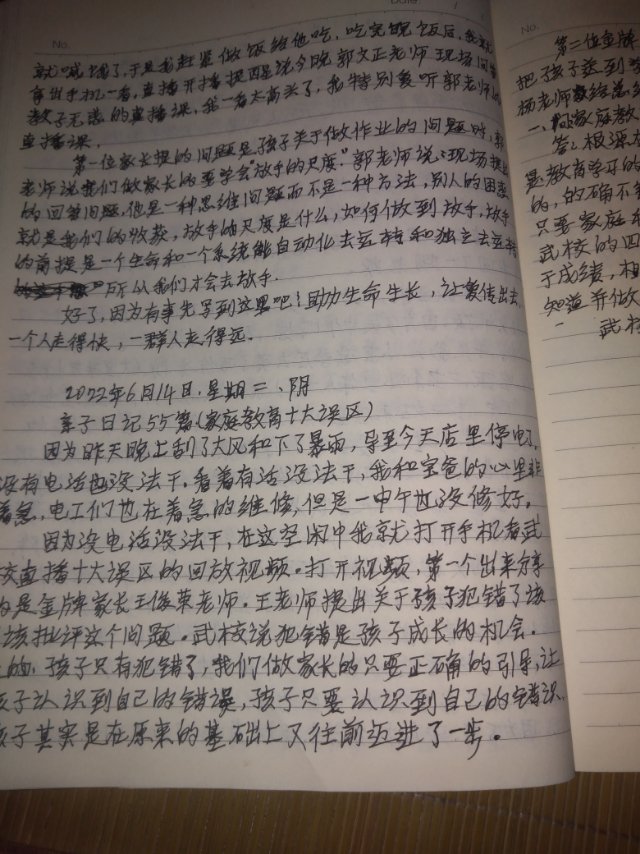 No.
就喊饿了,于是我赶紧做饭给他吃,吃完晚饭后,我就
拿出手机一看,直播开播提四是说今晚郭文正老师现场问答
教子无惑的直播课,我一看太高兴了,我特别爱听郭老师的
直播课。
第一位家长提的问题是孩子关于做作业的问题时,郭
老师说我们做家长的要学会"放手的尺度"。郭老师说:现场提出
的回答问题,他是一种思维问题而不是一种方法,别人的困惑
就是我们的收获,放手的尺度是什么,如何做到放手,放手
的前提是一个生命和一个系统能自动化去支持和独立去支持
"所以我们才会去放手.
好了,因为有事先写到这里吧!助力生命生长,让爱传出去,
一个人走得快,一群人走得远.
2022年6月14日.星期二、阴
亲子日记55篇(家庭教育十大误区)
因为昨天晚上刮了大风和下了暴雨,导至今天店里停电了.
没有电活也没法干.看着有活没法干,我和宝爸的心里非
着急,电工们也在着急的维修,但是一中午也没修好。
因为没电活没法干,在这空闲中我就打开手机看武
校直播十大误区的回放视频.打开视频,第一个出来分享
的是金牌家长王俊荣老师.王老师提出关于孩子犯错了该
该批评这个问题.武校说犯错是孩子成长的机会.
的.孩子只有犯错了,我们做家长的只要正确的引导,让
孩子认识到自己的错误,孩子只要认识到自己的错误.
孩子其实是在原来的基础上又往前迈进了一步。
No.
第二位金牌
把孩子送到
杨老师教给
一、问家庭教
答:根源
是教育学耳的
的,的确不
只要家庭
武校的四
于成绩,相
知道并做
武校